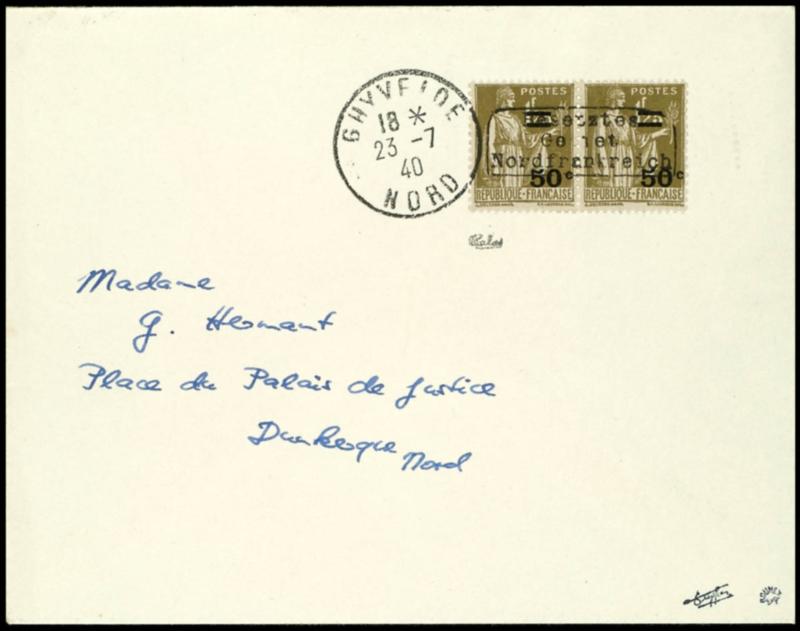 GHYVELDE
18 *
23 -7
40
NORD
POSTES POSTES
Besetztes
Gebiet
Nordfrankreich
50c 50c
RÉPUBLIQUE-FRANÇAISE RÉPUBLIQUE-FRANÇAISE
Calves
Madame
G. Hermant
Place du Palais de Justice
Dunkerque
Nord
ROUMET